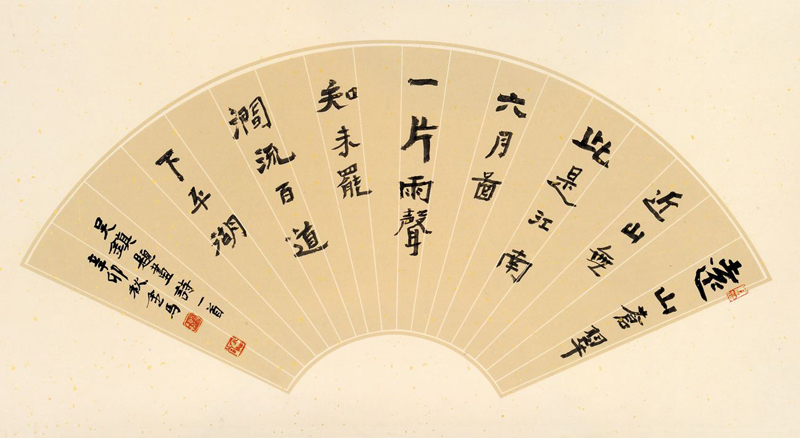 遠山蒼翠
近山無
此是江南
六月啚
一片雨聲
知未罷
澗流百道
下平湖
吴鎮題畫詩一首
辛卯秋